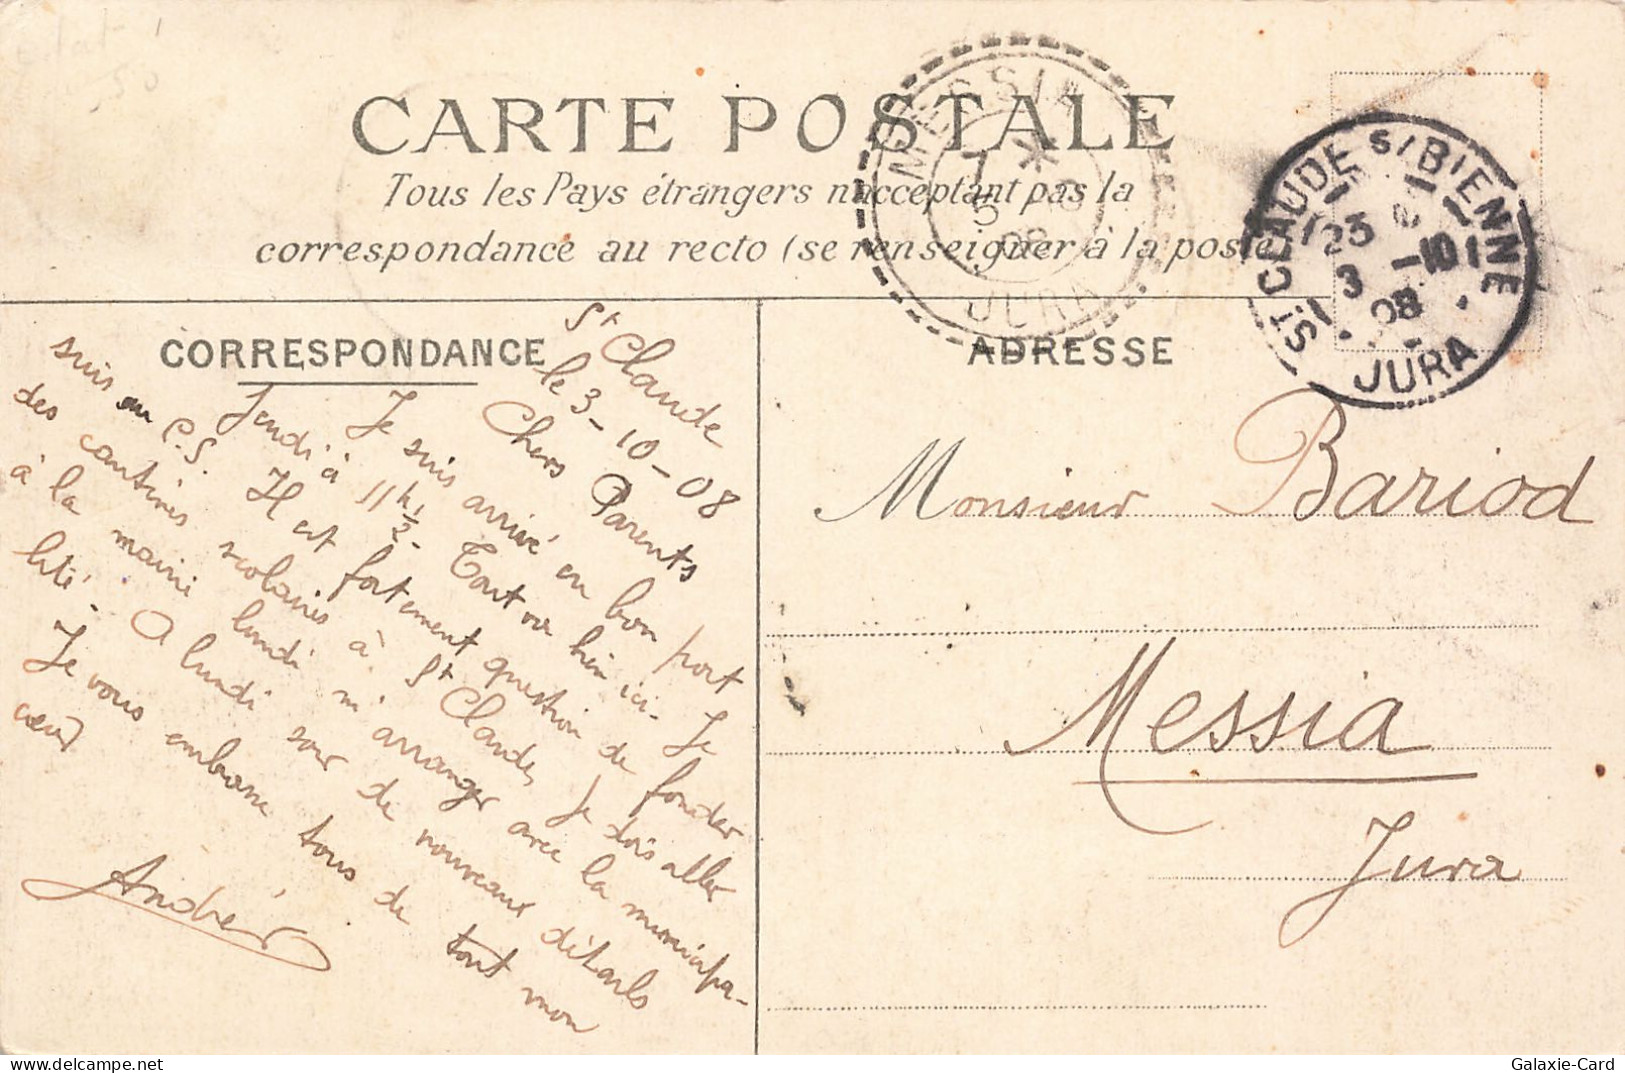 CARTE POSTALE
Tous les Pays étrangers n'acceptant pas la
correspondance au recto (se renseigner à la poste)
MESSIA
7 *
5 10
08
JURA
ST CLAUDE S/ BIENNE
23
3 -10
08
JURA
CORRESPONDANCE
ADRESSE
St Claude
le 3-10-08
Chers Parents
Je suis arrivé en bon port
Jeudi à 11h ½. Tout va bien ici. Je
suis au C.S. Il est fortement question de fonder
des cantines scolaires à St Claude, Je dois aller
à la mairie lundi m'arranger avec la municipa-
lité. A lundi soir de nouveaux détails
Je vous embrasse tous de tout mon
cœur
André
Monsieur Bariod
Messia
Jura
Galaxie-Card